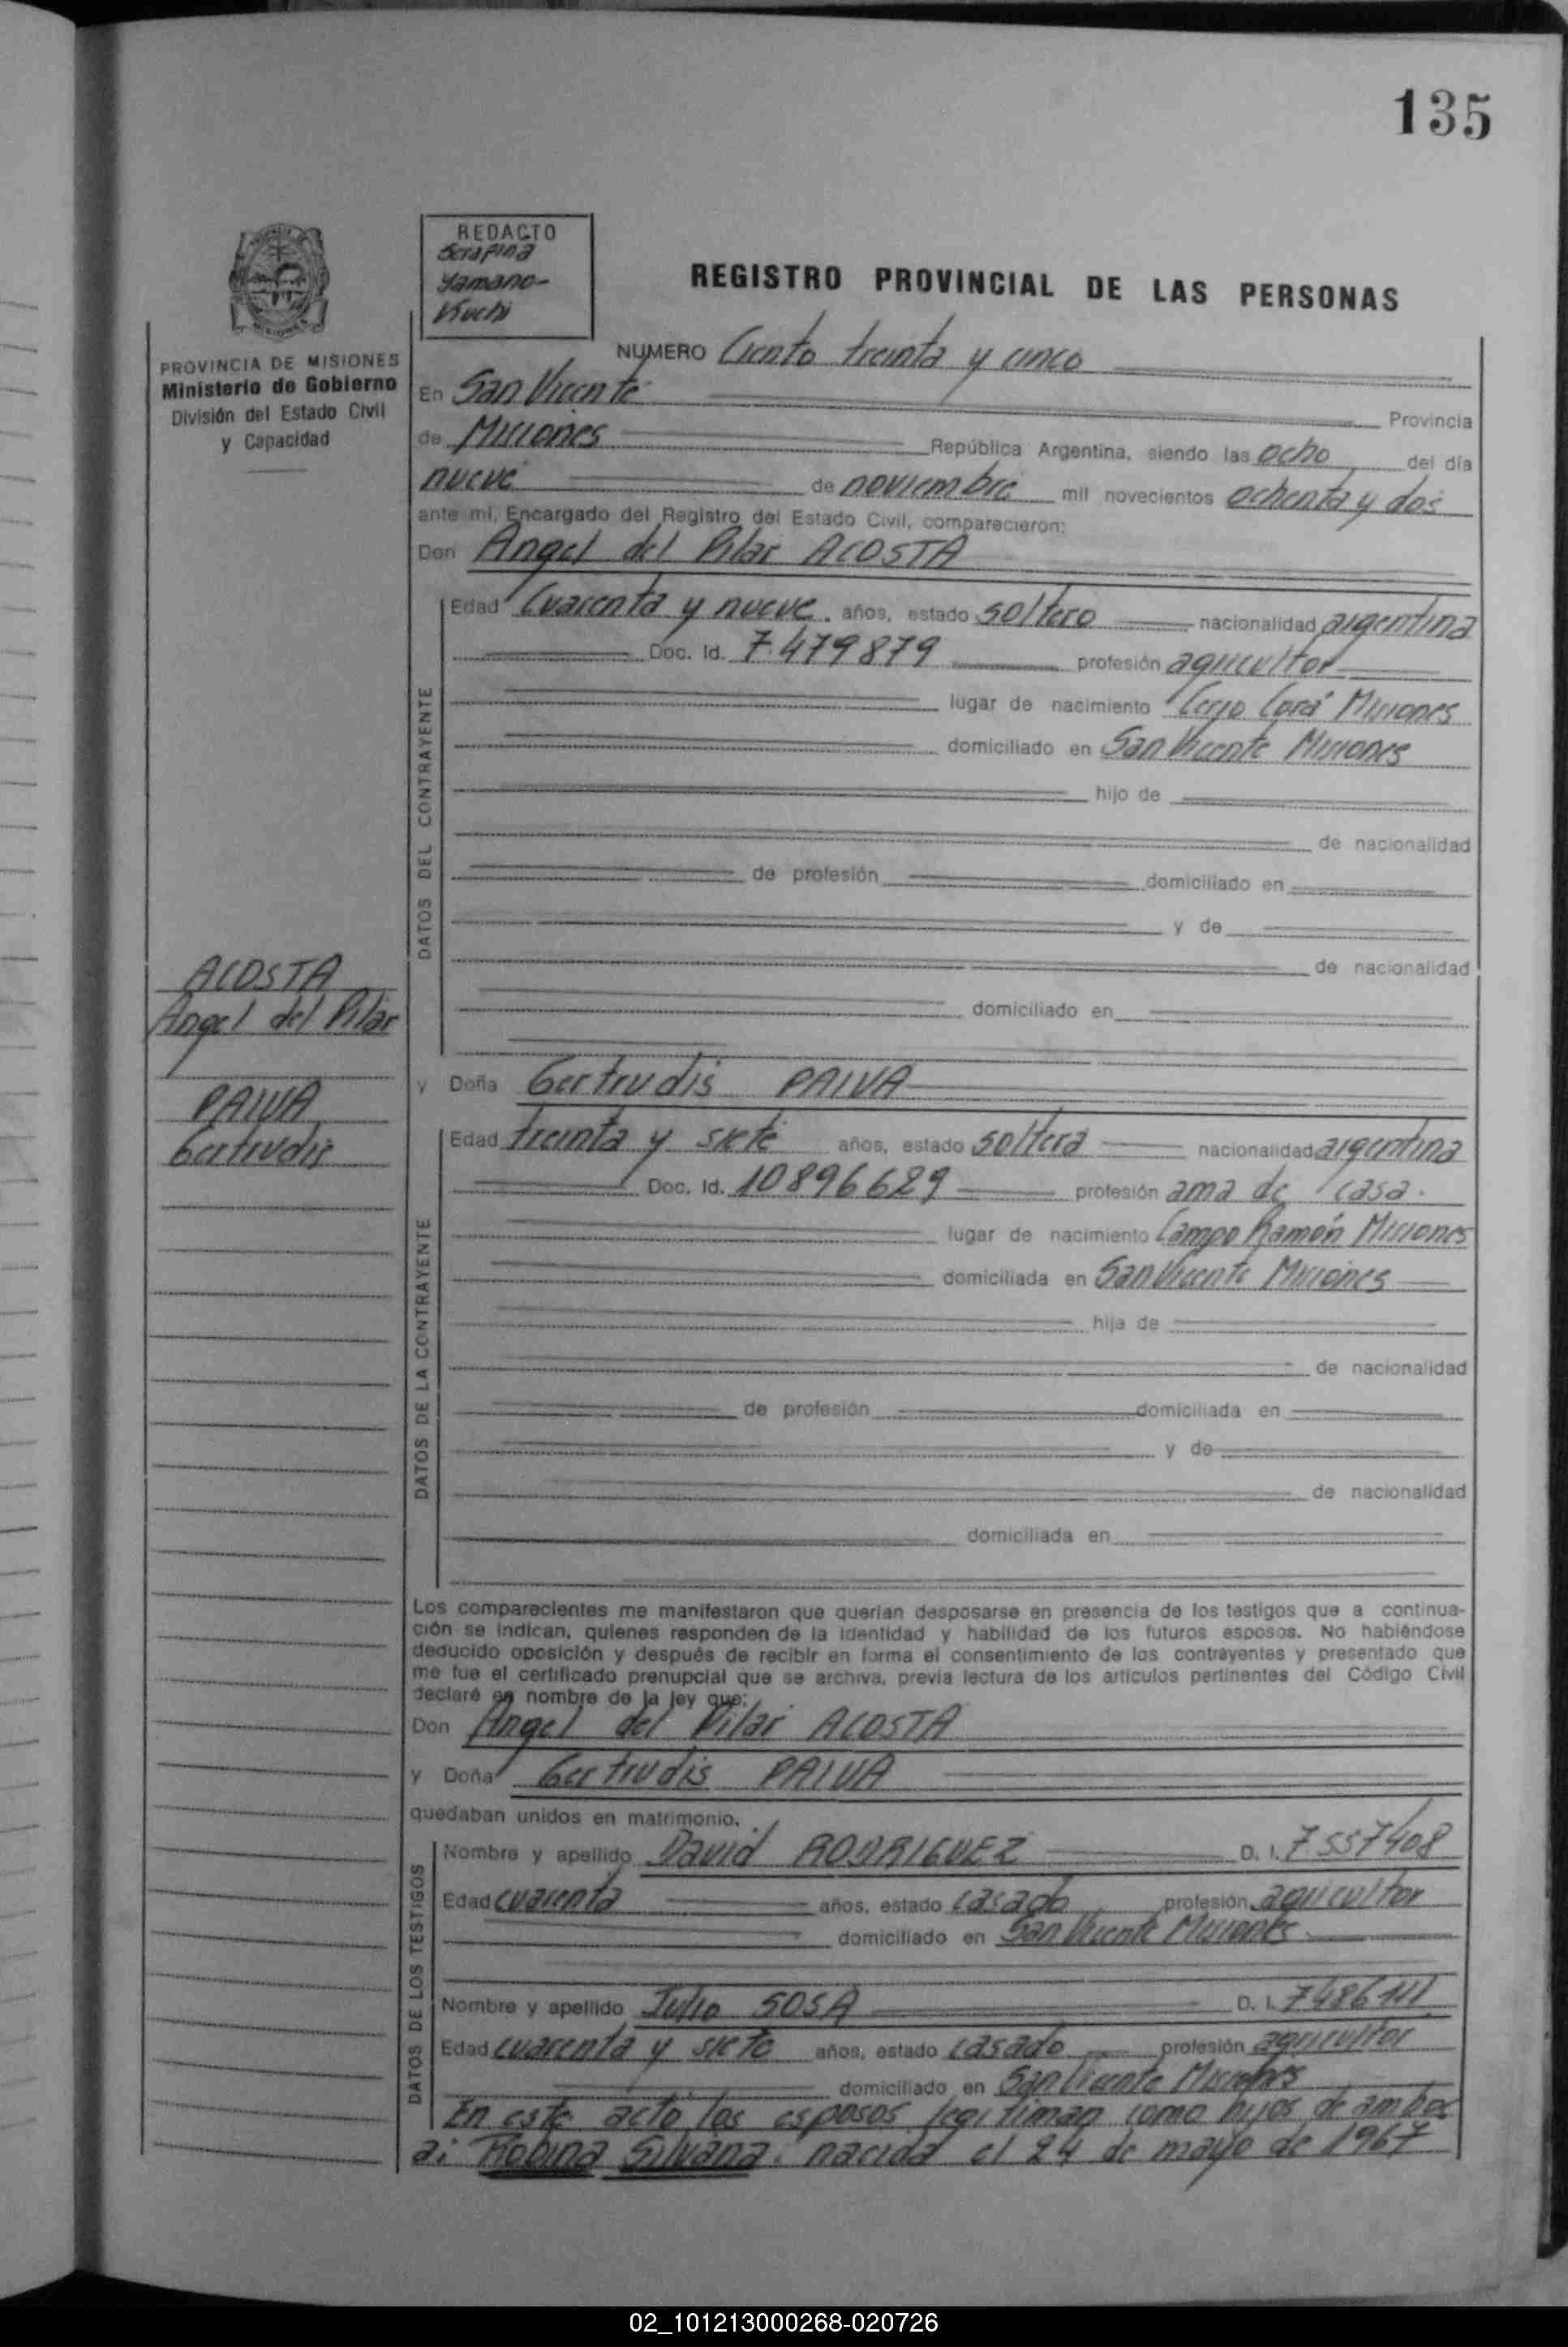 135
REDACTO
Serafina
Yamano-
Kuchi
REGISTRO PROVINCIAL DE LAS PERSONAS
PROVINCIA DE MISIONES
Ministerio de Gobierno
División del Estado Civil
y Capacidad
NUMERO Ciento treinta y cinco
En San Vicente Provincia
de Misiones República Argentina, siendo las ocho del día
nueve de noviembre mil novecientos ochenta y dos
ante mi, Encargado del Registro del Estado Civil, comparecieron:
Don Angel del Pilar ACOSTA
DATOS DEL CONTRAYENTE
Edad Cuarenta y nueve. años, estado soltero nacionalidad argentina
Doc. Id. 7.479879 profesión agricultor
lugar de nacimiento Cerro Corá Misiones
domiciliado en San Vicente Misiones
hijo de
de nacionalidad
de profesión domiciliado en
y de
de nacionalidad
domiciliado en
ACOSTA
Angel del Pilar
PAIVA
Gertrudis
y Doña Gertrudis PAIVA
DATOS DE LA CONTRAYENTE
Edad treinta y siete años, estado soltera nacionalidad argentina
Doc. Id. 10896629 profesión ama de casa.
lugar de nacimiento Campo Ramón Misiones
domiciliada en San Vicente Misiones
hija de
de nacionalidad
de profesión domiciliada en
y de
de nacionalidad
domiciliada en
Los comparecientes me manifestaron que querían desposarse en presencia de los testigos que a continua-
ción se indican, quienes responden de la identidad y habilidad de los futuros esposos. No habiéndose
deducido oposición y después de recibir en forma el consentimiento de los contrayentes y presentado que
me fue el certificado prenupcial que se archiva, previa lectura de los artículos pertinentes del Código Civil
declaré en nombre de la ley que:
Don Angel del Pilar ACOSTA
y Doña Gertrudis PAIVA
quedaban unidos en matrimonio.
DATOS DE LOS TESTIGOS
Nombre y apellido David RODRIGUEZ D. I. 7.557408
Edad cuarenta años, estado casado profesión agricultor
domiciliado en San Vicente Misiones
Nombre y apellido Julio SOSA D. I.
Edad cuarenta y siete años, estado casado profesión agricultor
domiciliado en San Vicente Misiones
En este acto los esposos legitiman como hijos de ambos
a: Robina Silvana. nacida el 24 de mayo de 1967
02_101213000268-020726